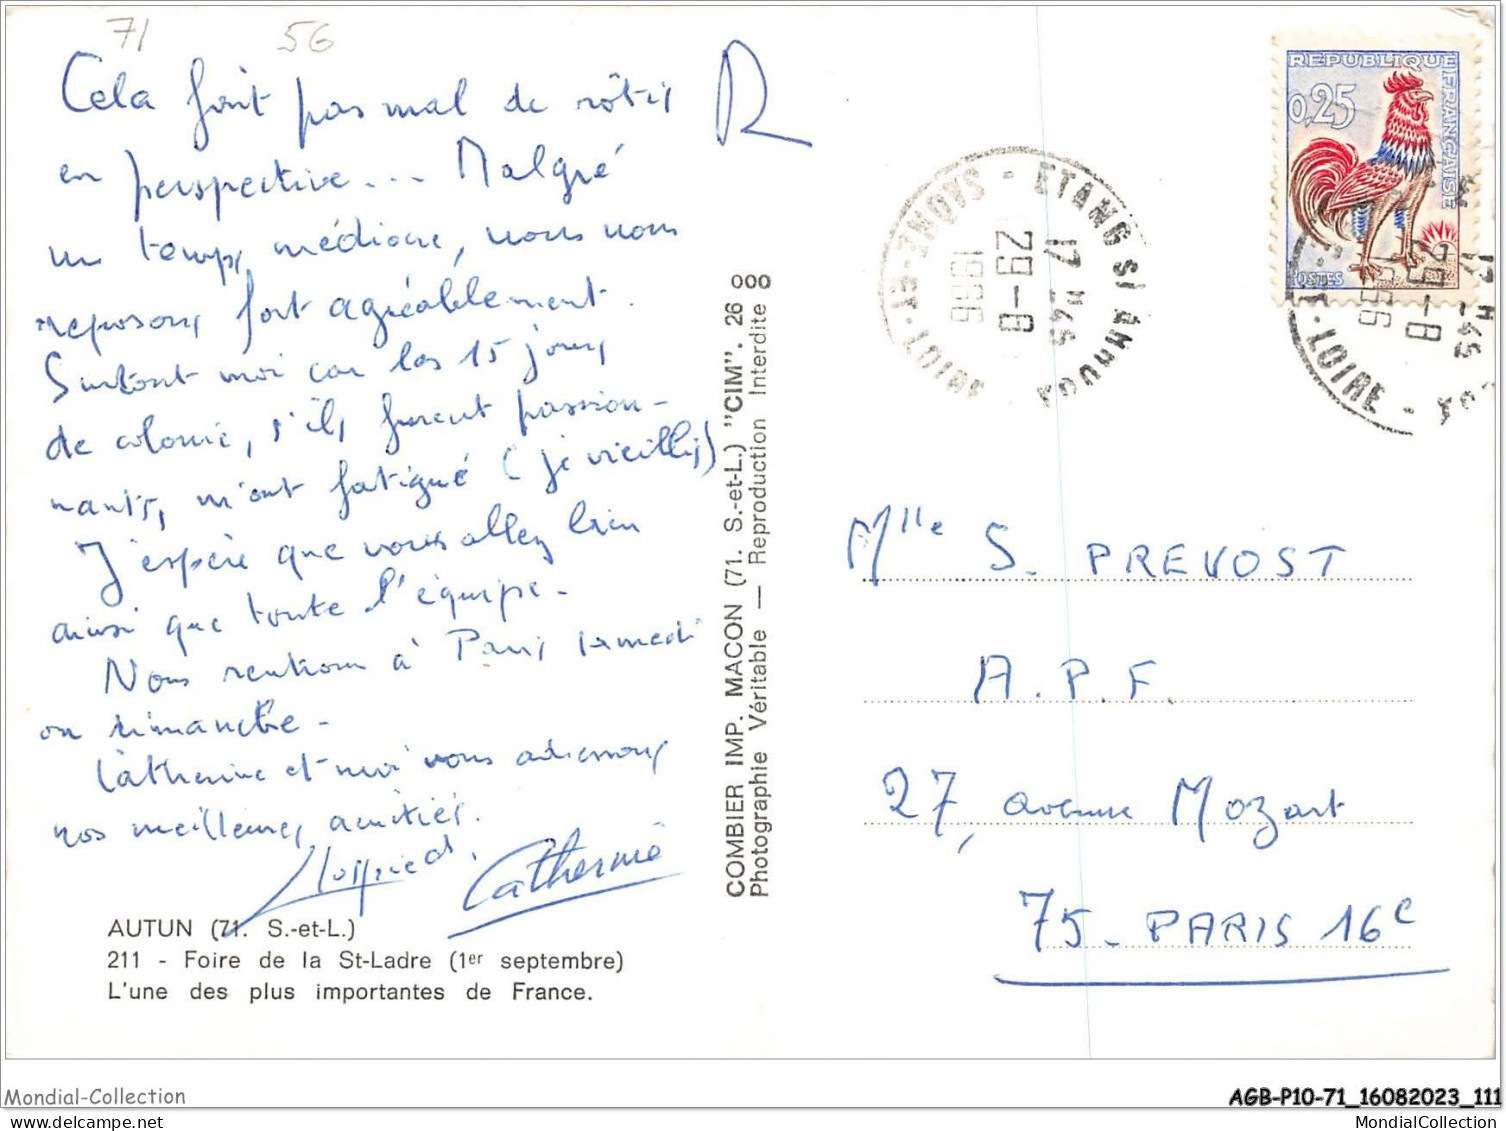 71 56
Cela fait pas mal de rôtis
en perspective... Malgré
un temps médiocre, nous nous
reposons fort agréablement.
Surtout moi car les 15 jours
de colonie, s'ils furent passion-
nants, m'ont fatigué (je vieillis)
J'espère que vous allez bien
ainsi que toute l'équipe.
Nous rentrons à Paris samedi
ou dimanche.
Catherine et moi vous adressons
nos meilleures amitiés.
Catherine
AUTUN (71. S.-et-L.)
211 - Foire de la St-Ladre (1er septembre)
L'une des plus importantes de France.
COMBIER IMP. MACON (71. S.-et-L.) "CIM". 26 000
Photographie Véritable — Reproduction Interdite
R
ETANG S/ ARROUX
17 H 45
29-8
1966
SAONE-ET-LOIRE
REPUBLIQUE FRANÇAISE
0,25
POSTES
17 H 45
29-8
1966
E-ET-LOIRE
Mlle S. PREVOST
A.P.F.
27, avenue Mozart
75 - PARIS 16e
Mondial-Collection
AGB-P10-71_16082023_111
MondialCollection